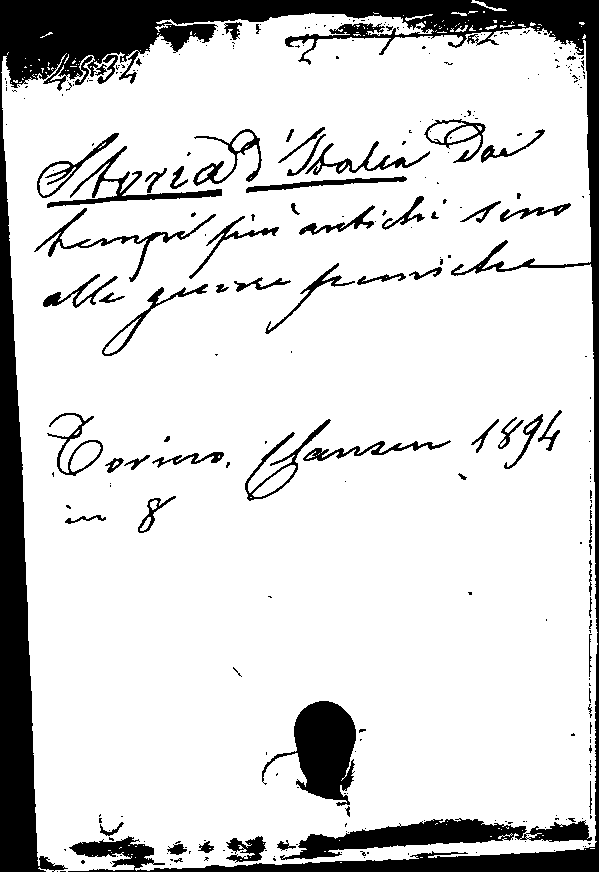 4534
Storia d'Italia Dai
tempi più antichi sino
alle guerre puniche
Torino. Clausen 1894
in 8